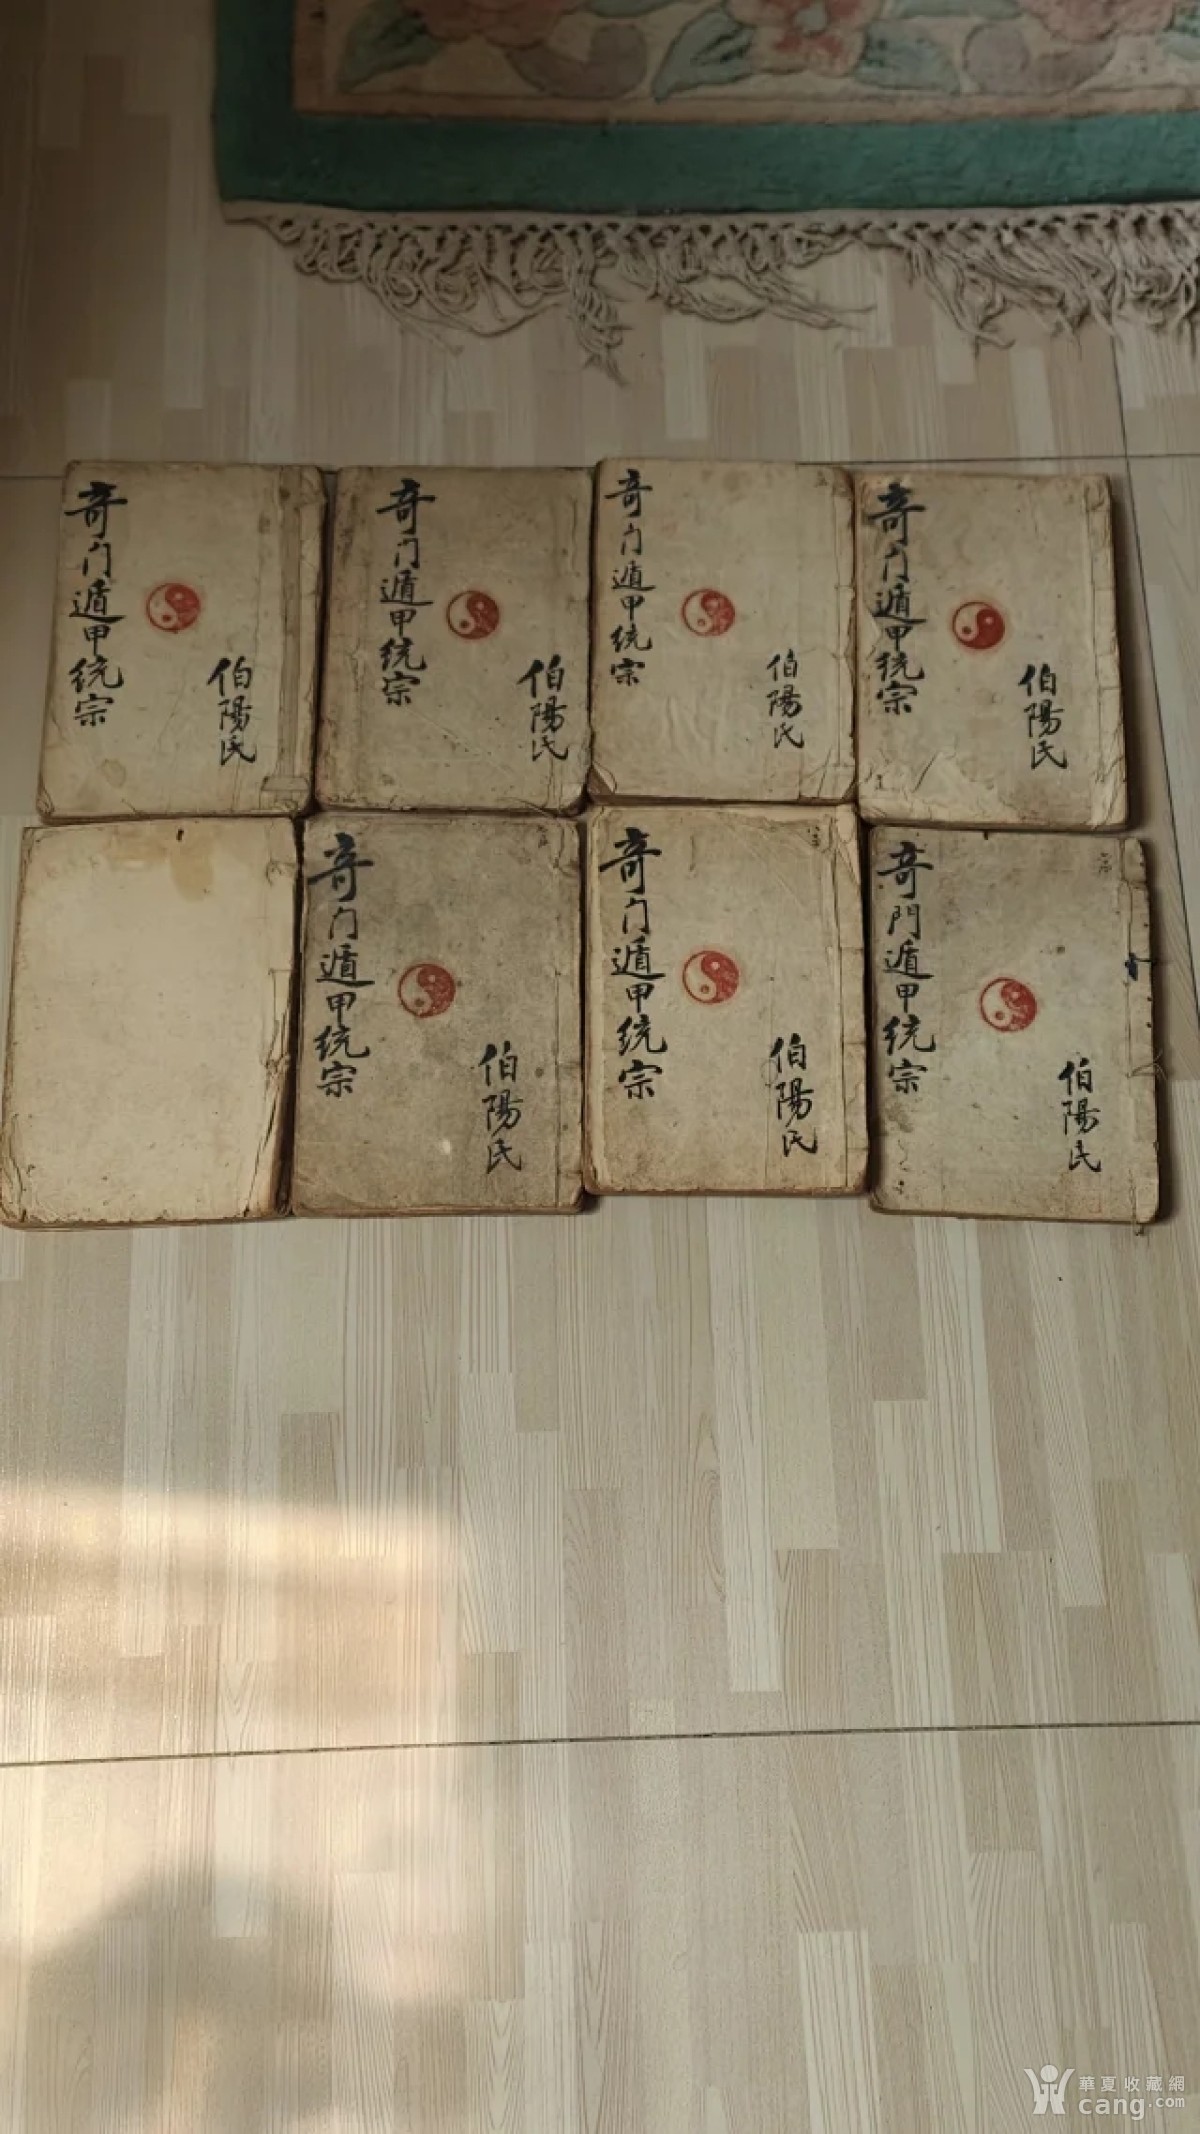 奇门遁甲统宗
伯陽氏
奇门遁甲统宗
伯陽氏
奇门遁甲统宗
伯陽氏
奇门遁甲统宗
伯陽氏
奇门遁甲统宗
伯陽氏
奇门遁甲统宗
伯陽氏
奇門遁甲统宗
伯陽氏
華夏收藏網
cang.com